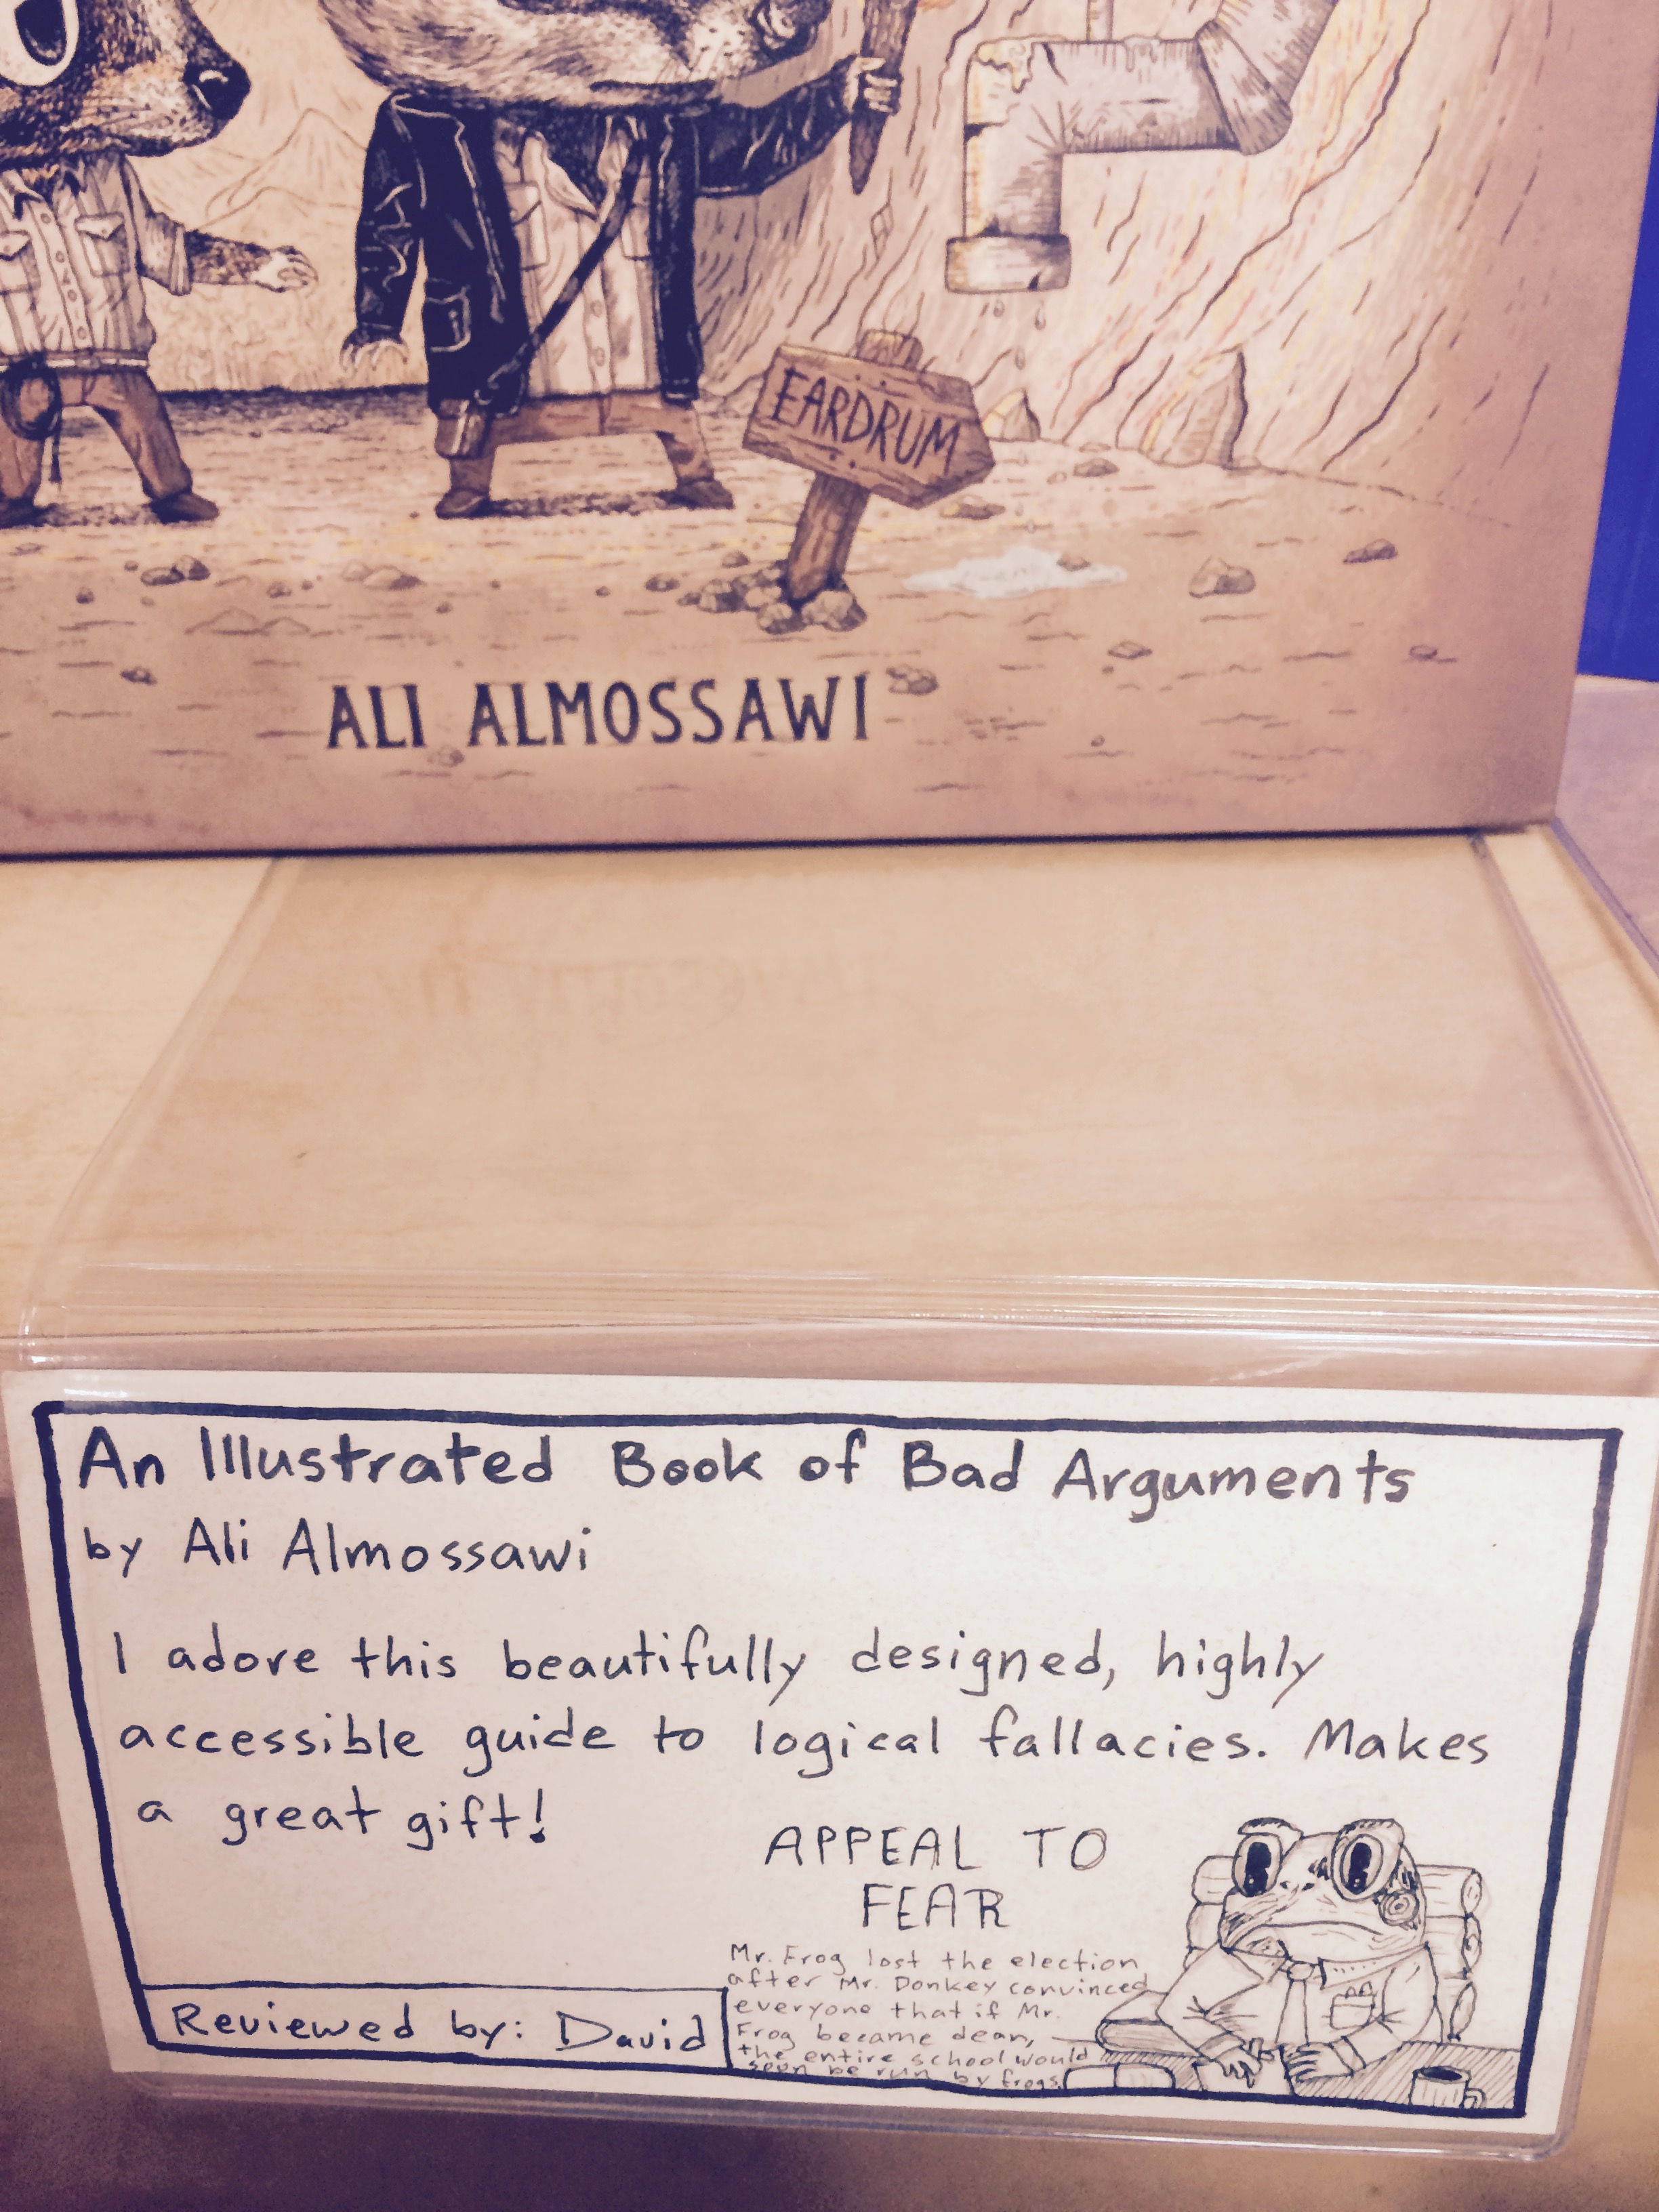 EARDRUM
ALI ALMOSSAWI
An Illustrated Book of Bad Arguments
by Ali Almossawi
I adore this beautifully designed, highly
accessible guide to logical fallacies. Makes
a great gift!
APPEAL TO
FEAR
Mr. Frog lost the election
after Mr. Donkey convinced
everyone that if Mr.
Frog became dean,
the entire school would
soon be run by frogs.
Reviewed by: David